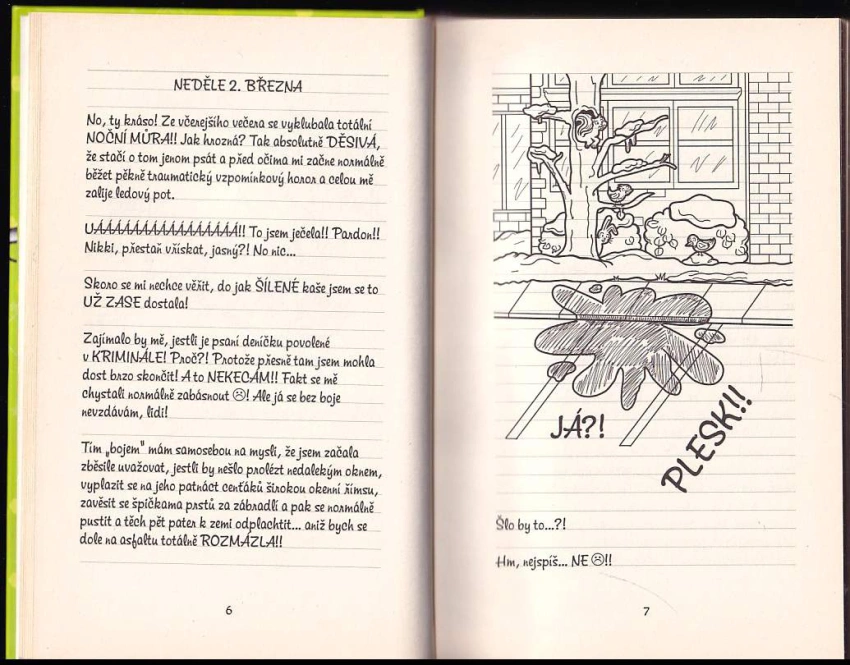 NEDĚLE 2. BŘEZNA
No, ty kráso! Ze včerejšího večera se vyklubala totální
NOČNÍ MŮRA!! Jak hrozná? Tak absolutně DĚSIVÁ,
že stačí o tom jenom psát a před očima mi začne normálně
běžet pěkně traumatický vzpomínkový horor a celou mě
zalije ledový pot.
UÁÁÁÁÁÁÁÁÁÁÁÁÁÁÁÁ!! To jsem ječela!! Pardon!!
Nikki, přestaň vřískat, jasný?! No nic...
Skoro se mi nechce věřit, do jak ŠÍLENÉ kaše jsem se to
UŽ ZASE dostala!
Zajímalo by mě, jestli je psaní deníčku povolené
v KRIMINÁLE! Proč?! Protože přesně tam jsem mohla
dost brzo skončit! A to NEKECÁM!! Fakt se mě
chystali normálně zabásnout ☹! Ale já se bez boje
nevzdávám, lidi!
Tím „bojem" mám samosebou na mysli, že jsem začala
zběsile uvažovat, jestli by nešlo prolézt nedalekým oknem,
vyplazit se na jeho patnáct centáků širokou okenní římsu,
zavěsit se špičkama prstů za zábradlí a pak se normálně
pustit a těch pět pater k zemi odplachtit... aniž bych se
dole na asfaltu totálně ROZMÁZLA!!
6
JÁ?!
PLESK!!
Šlo by to...?!
Hm, nejspíš... NE ☹!!
7